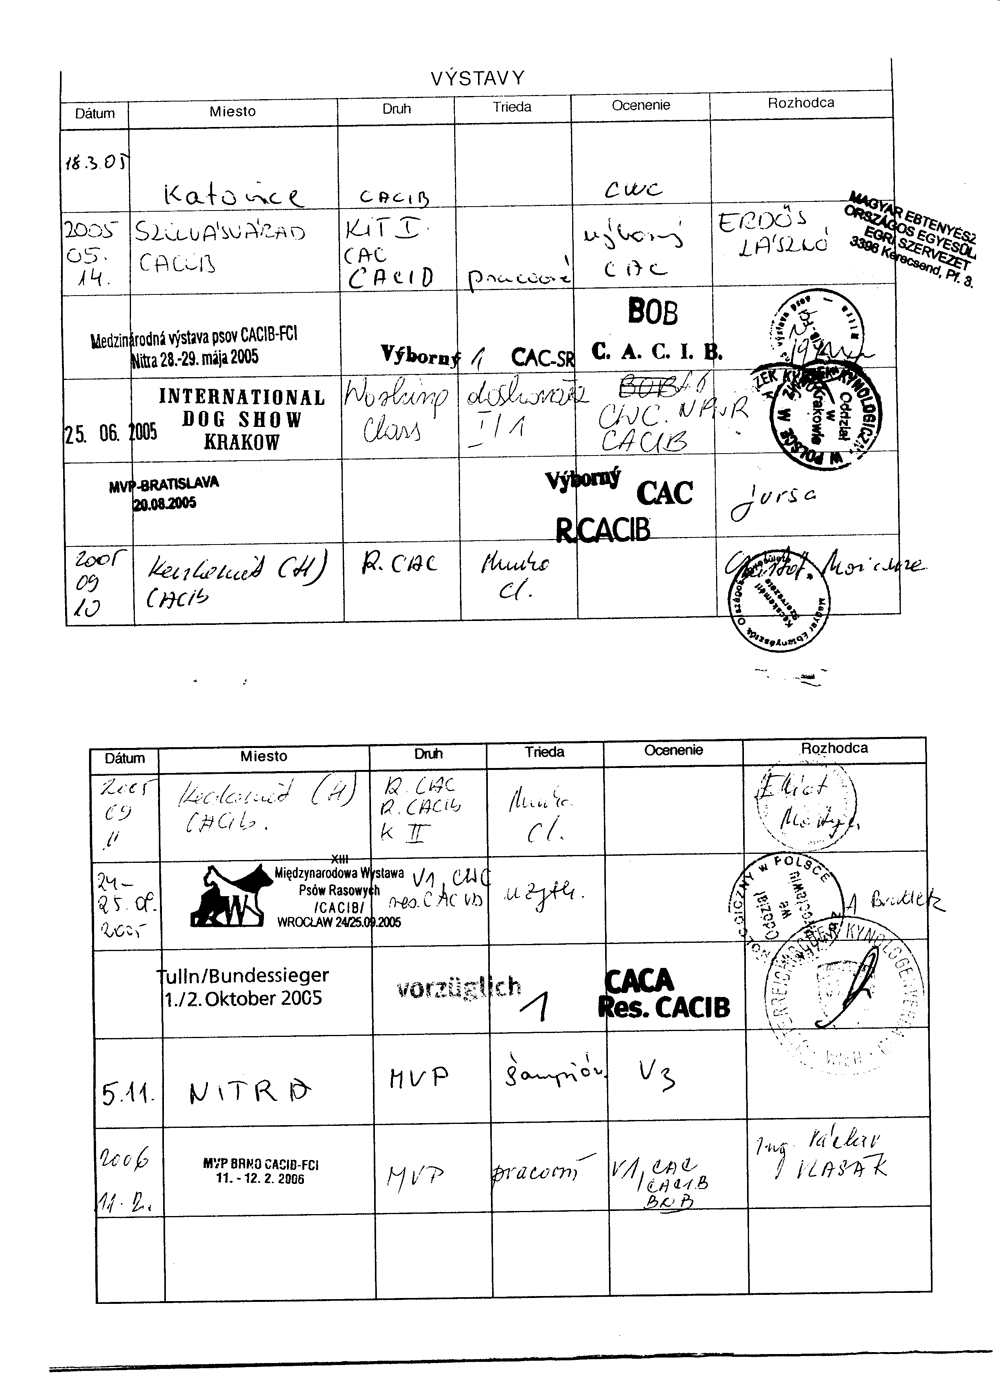 VÝSTAVY
Dátum Miesto Druh Trieda Ocenenie Rozhodca
18.3.05 Katovice CACIB CWC
2005 05. 14. SZILVÁSVÁRAD CACIB KIT I. CAC CACIB pracovné výborný CAC ERDŐS LÁSZLÓ
MAGYAR EBTENYÉSZ
ORSZÁGOS EGYESÜL
EGRI SZERVEZET
3396 Kerecsend, Pf. 3.
Medzinárodná výstava psov CACIB-FCI
Nitra 28.-29. mája 2005
Výborný 1 CAC-SR
BOB
C. A. C. I. B.
25. 06. 2005
INTERNATIONAL
DOG SHOW
KRAKOW
Working Class
I/1
BOB
CWC.
CACIB
Oddział
w
Krakowie
MVP-BRATISLAVA
20.08.2005
Výborný CAC
R.CACIB
Jursa
2005 09 10 (H) CACIB R. CAC Cl.
Dátum Miesto Druh Trieda Ocenenie Rozhodca
2005 09 11 (H) CACIB. R. CAC R. CACIB K II Cl.
24-25.09. 2005
XIII
Międzynarodowa Wystawa
Psów Rasowych
/CACIB/
WROCŁAW 24/25.09.2005
V1, CWC
res. CACIB
użytk.
Oddział
we
Wrocławiu
Tulln/Bundessieger
1./2. Oktober 2005
vorzüglich 1
CACA
Res. CACIB
5.11. NITRA MVP šampión. V3
2006 11.2.
MVP BRNO CACIB-FCI
11. - 12. 2. 2006
MVP pracovní V1, CAC CACIB BOB
Ing. Václav VLASÁK